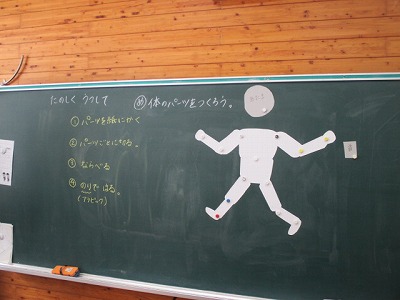 たのしく うつして
め 体のパーツをつくろう。
① パーツを紙にかく
② パーツごとに切る。
③ ならべる
④ のりで はる。